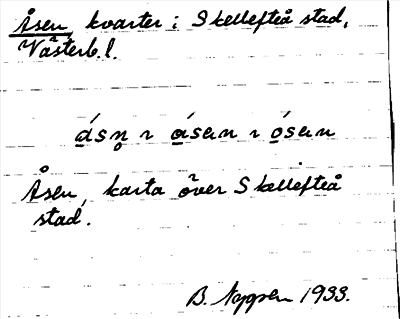 Åsen, kvarter i Skellefteå stad,
Västerb. l.
ásn̥ ı ásɐn ı ósɐn
Åsen, karta över Skellefteå
stad.
B. 1933.